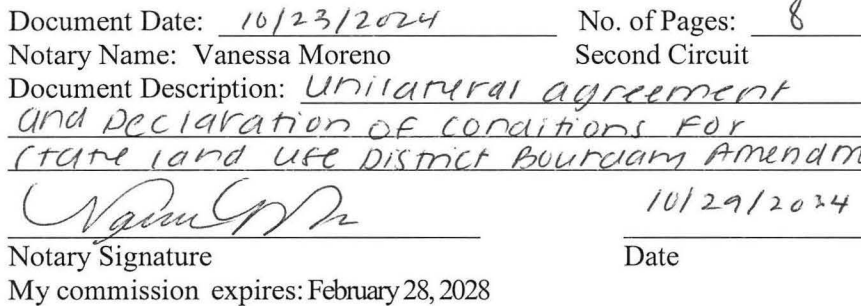 Document Date: 10/23/2024 No. of Pages: 8
Notary Name: Vanessa Moreno Second Circuit
Document Description: Unilateral agreement
and Declaration of conditions For
State land use District Boundary Amendm
10/29/2024
Notary Signature Date
My commission expires: February 28, 2028